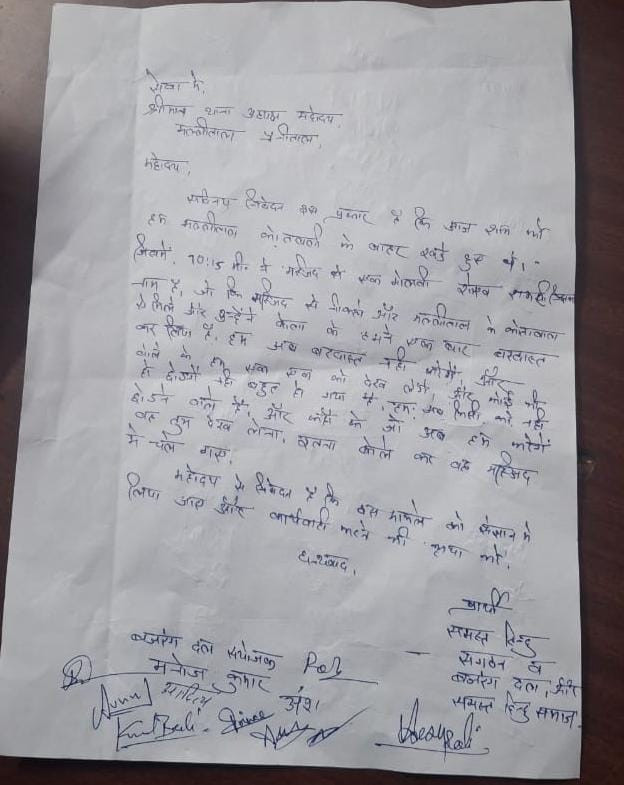 सेवा में,
श्रीमान थाना अध्यक्ष महोदय,
मल्लीताल नैनीताल,
महोदय,
सविनय निवेदन इस प्रकार है कि आज शाम को
हम मल्लीताल कोतवाली के बाहर खड़े हुए थे।
जिसमें, 10:15 मी. पे मस्जिद से एक मोलवी
नाम है, जो कि मस्जिद से नीकले और मल्लीताल के कोतवाल
से मिले और उन्होंने बोला के हमने एक बार बरदास्त
कर लिया है, हम अब बरदास्त नही करेगें, और
बोले के हम एक एक को देख लेगें, और कोई भी
हो छोड़ेगें नही बहुत हो गया है, हम अब किसी को नही
छोड़ने वाले है, और कहाँ के जो अब हम करेगें
वह तुम देख लेना, इतना बोल कर वह मस्जिद
में चले गए,
महोदय से निवेदन है कि इस मामले को संज्ञान मे
लिया जाए और कार्यवाही करने की कृपा करे,
धन्यवाद,
प्रार्थी
समस्त हिन्दु
संगठन व
बजरंग दल, और
समस्त हिंदु समाज
बजरंग दल संयोजक
मनोज कुमार
अंश